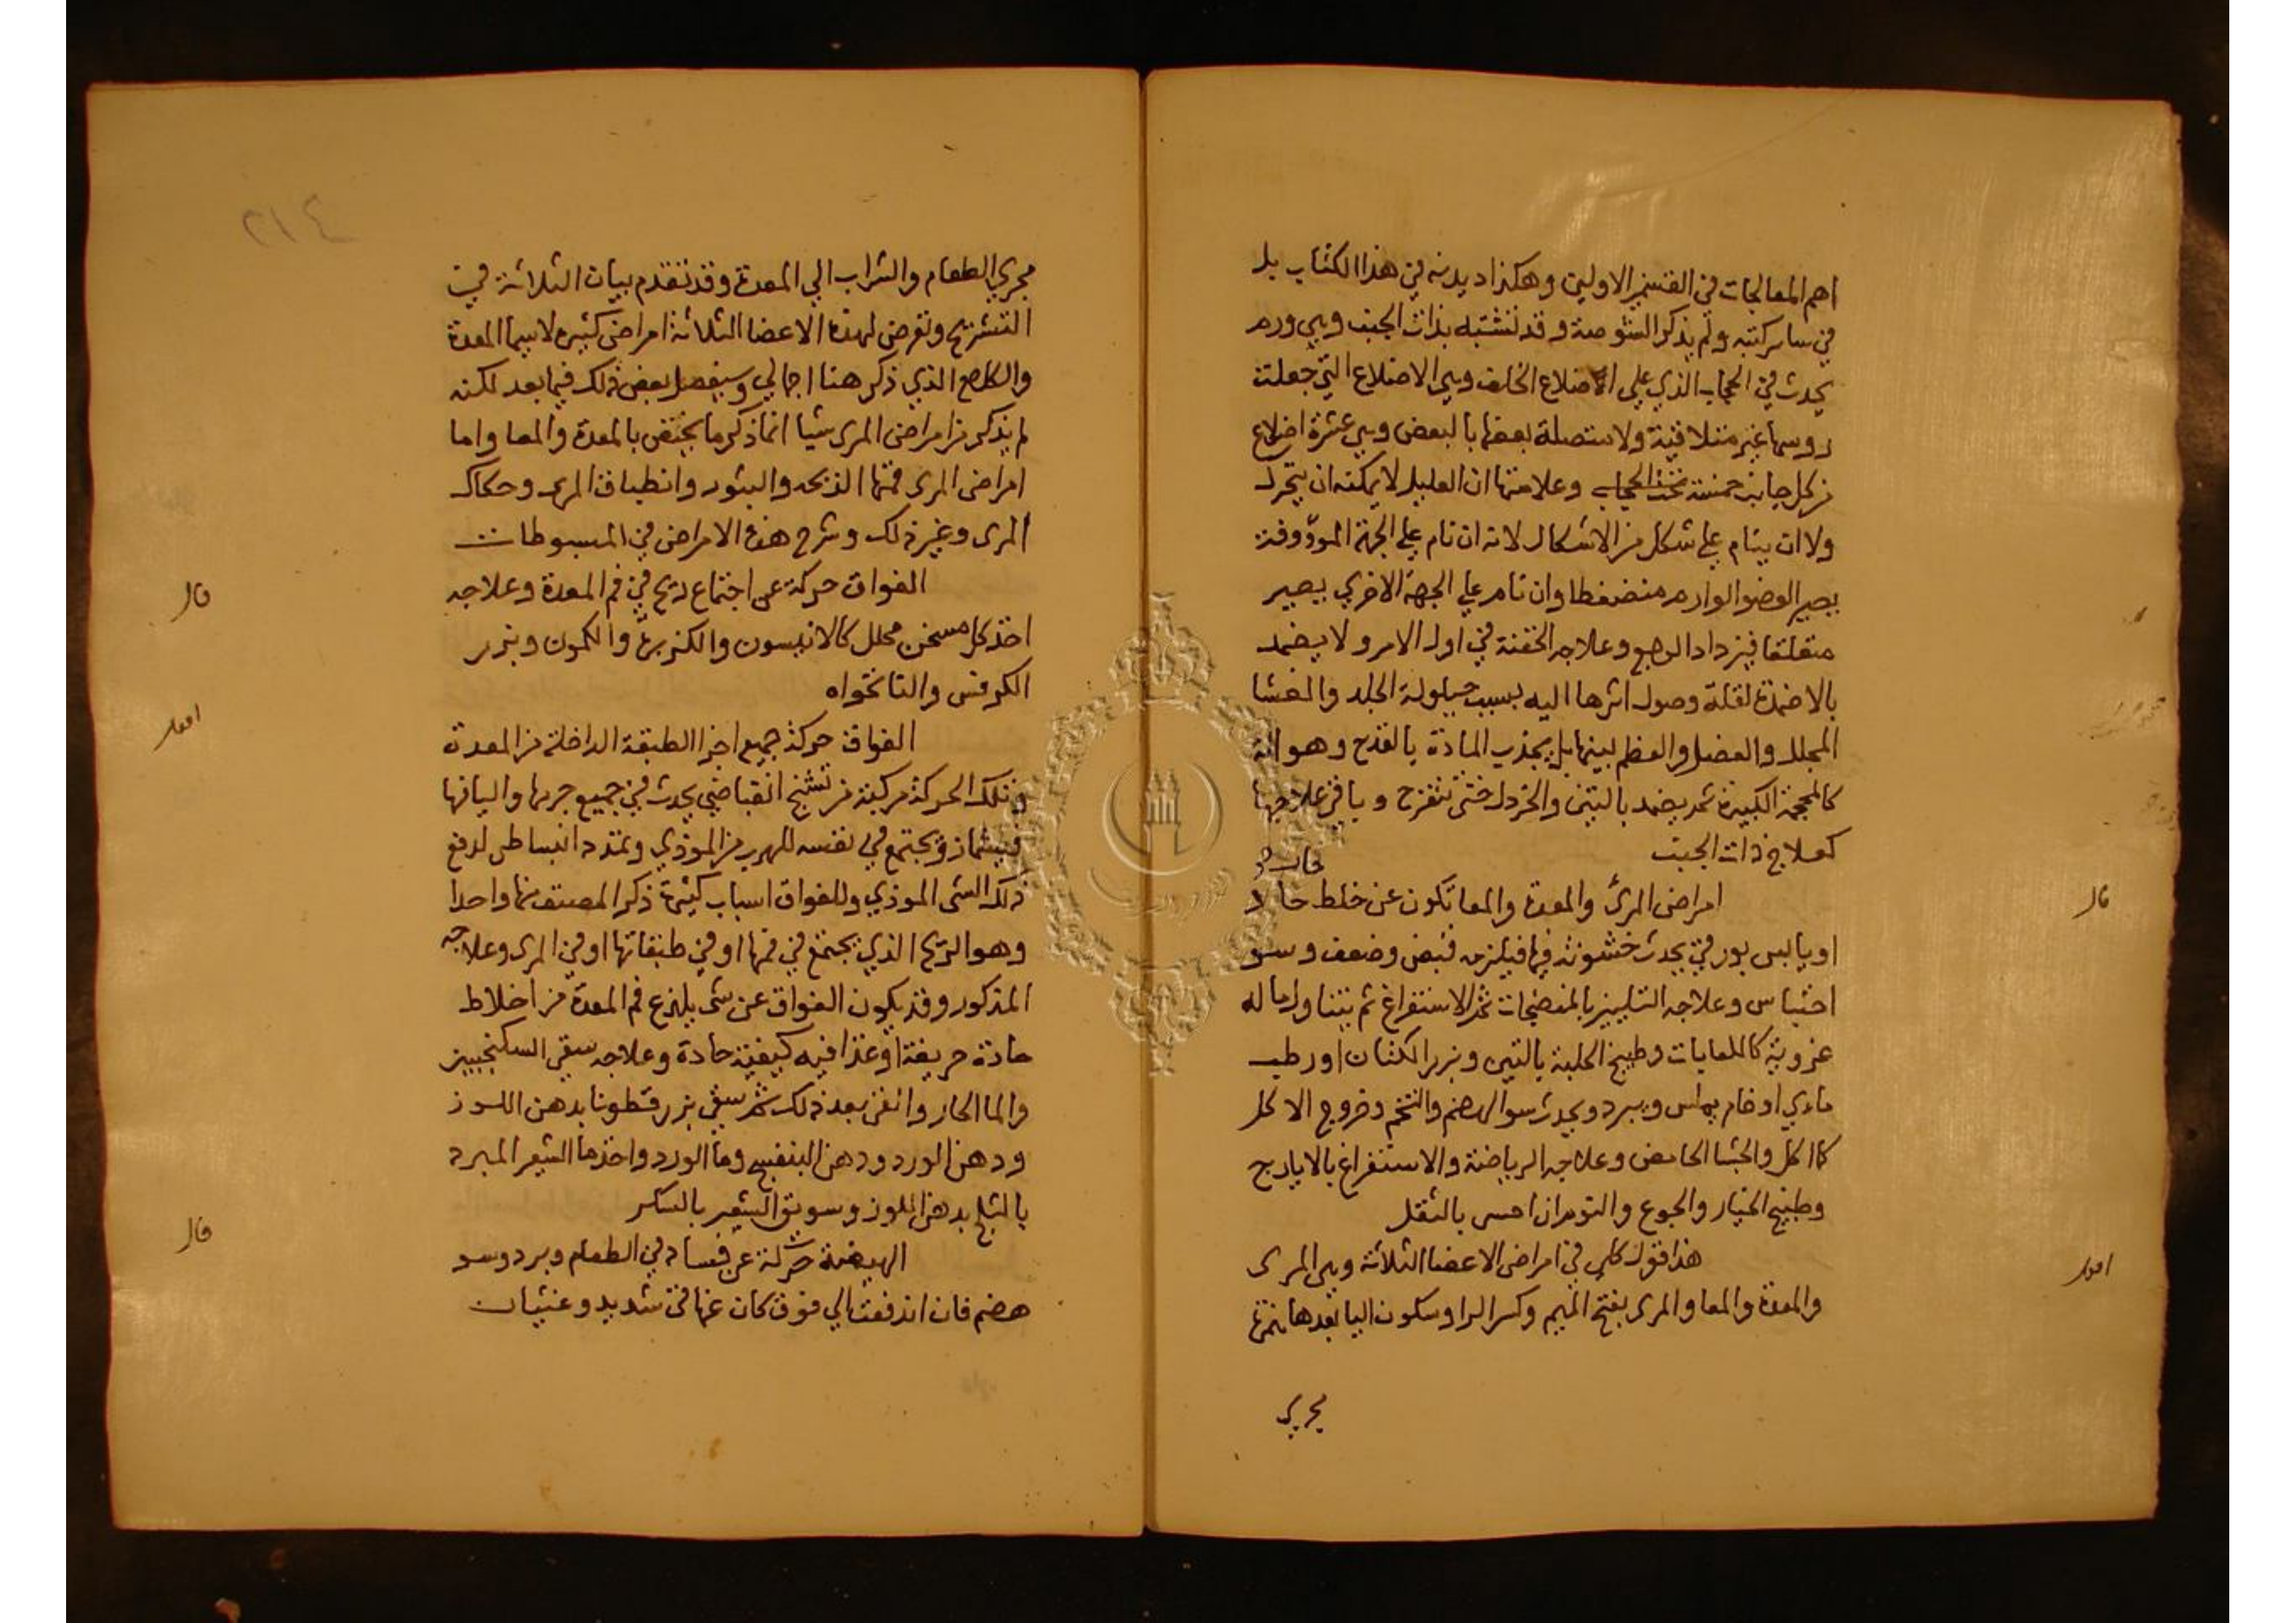 اهم المعالجات في القسمين الاولين وهكذا ديدنه في هذا الكتاب بل
في ساير كتبه ولم يذكر الشوصة وقد تشتبه بذات الجنب وهي ورم
يحدث في الحجاب الذي على الاضلاع الخلف وهي الاضلاع التي جعلت
روسها غير متلاقية ولا متصلة بعضها بالبعض وهي عشرة اضلاع
من كل جانب خمسة تحت الحجاب وعلامتها ان العليل لا يمكنه ان يتحرك
ولا ان ينام على شكل من الاشكال لانه ان نام على الجهة
يصير العضو الوارم منضغطا وان نام على الجهة الاخري يصير
متعلقا فيزداد الوجع وعلاجه الحقنة في اول الامر ولا يضمد
بالاضمدة لقلة وصول اثرها اليه بسبب حيلولة الجلد والغشا
المجلل والعضل والعظم بينهما بل يجذب المادة بالقدح وهو انة
كالمحجمة الكبيرة ثم يضمد بالتين والخردل حتى تتقرح وباقي علاجها
كعلاج ذات الجنب
حاد
قال
امراض المرئ والمعدة والمعا تكون عن خلط حاد
او يابس بورقي يحدث خشونة فيها فيلزمه قبض وضعف وسو
احتباس وعلاجه التليين بالمنضجات ثم الاستفراغ ثم يتناول ما له
غروية كاللعابات وطبيخ الحلبة بالتين وبزر الكتان او رطب
مادي او خام يملس ويبرد ويحدث سو الهضم والتخم وخروج الاكل
كما اكل والجشا الحامض وعلاجه الرياضة والاستفراغ بالايارج
وطبيخ الخيار والجوع والنوم ان احس بالثقل
اقول
هذا قول كلي في امراض الاعضا الثلاثة وهي المرى
والمعدة والمعا والمرى بفتح الميم وكسر الرا وسكون اليا بعدها همزة
مجري
٢١٤
مجري الطعام والشراب الي المعدة وقد تقدم بيان الثلاثة في
التشريح وتعرض لهذه الاعضا الثلاثة امراض كثيرة لاسيما المعدة
والكلام الذي ذكر هنا اجمالي وسيفصل بعض ذلك فيما بعد لكنه
لم يذكر من امراض المرى شيا انما ذكر ما يختص بالمعدة والمعا واما
امراض المرى فمنها الذبحه والبثور وانطباق المرى وحكاك
المرى وغير ذلك وشرح هذه الامراض في المبسوطات
قال
الفواق حركة عن اجتماع ريح في فم المعدة وعلاجه
اخذ كل مسخن محلل كالانيسون والكزبرة والكمون وبزر
الكرفس والنانخواه
اقول
الفواق حركة جميع اجزا الطبقة الداخلة من المعدة
وتلك الحركة مركبة من تشنج انقباضي يحدث في جميع جرمها واليافها
فيشماز ويجتمع في نفسه للهرب من الموذي وتمدد انبساطي لدفع
ذلك الشى الموذي وللفواق اسباب كثيرة ذكر المصنف منها واحدا
وهو الريح الذي يجتمع في فمها او في طبقاتها او في المرى وعلاجه
المذكور وقد يكون الفواق عن شى يلذع فم المعدة من اخلاط
حادة حريفة او غذا فيه كيفية حادة وعلاجه سقي السكنجبين
والما الحار والقى بعد ذلك ثم سقي بزر قطونا بدهن اللوز
ودهن الورد ودهن البنفسج وما الورد واخذ ما الشعير المبرد
بالثلج بدهن اللوز وسويق الشعير بالسكر
قال
الهيضة حركة عن فساد في الطعام وبرد وسو
هضم فان اندفعت الي فوق كان عنها قى شديد وغثيان